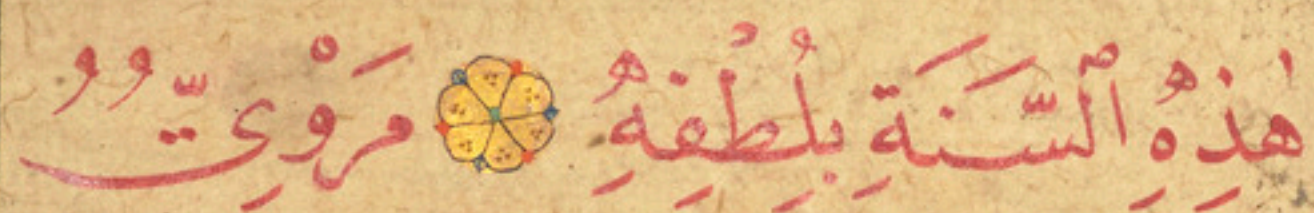 هٰذِهِ ٱلسَّنَةِ بِلُطْفِهِ مَرْوِيٌّ